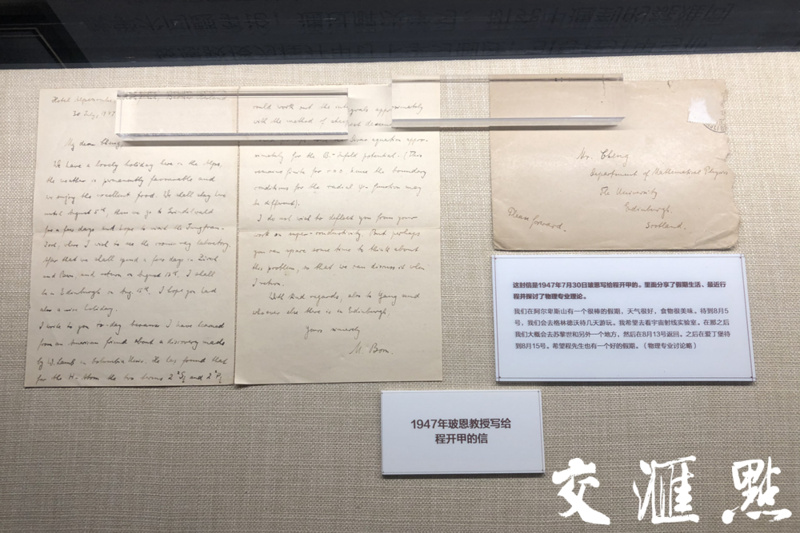 30 July, 1947
My dear Cheng,
We have a lovely holiday here in the Alps.
the weather is permanently favourable and
we enjoy the excellent food. We shall stay here
until August 5th, then we go to Grindelwald
for a few days and hope to visit the Jungfrau-
Joch, where I wish to see the cosmic ray laboratory.
After that we shall spend a few days in Zürich
and Bern, and return on August 13th. I shall
be in Edinburgh on Aug 15th. I hope you had
also a nice holiday.
I write to you to-day because I have learned
from an American friend about a discovery made
by W. Lamb in Columbia Univ. He has found that
for the H-Atom the two terms
could work out the integrals approximately
with the method of steepest descent
equation approxi-
mately for the
potential. (This
remains finite for r=0 hence the boundary
conditions for the radial wave function may
be different).
I do not wish to deflect you from your
work on supra-conductivity. But perhaps
you can spare some time to think about
this problem, so that we can discuss it when
I return.
With kind regards, also to Yang and
whoever else there is in Edinburgh,
Yours sincerely
M. Born
Mr. Cheng
Department of Mathematical Physics
The University
Edinburgh
Scotland.
Please forward.
这封信是1947年7月30日玻恩写给程开甲的。里面分享了假期生活、最近行
程并探讨了物理专业理论。
我们在阿尔卑斯山有一个很棒的假期，天气很好，食物很美味。待到8月5
号，我们会去格林德沃待几天游玩。我希望去看宇宙射线实验室。在那之后
我们大概会去苏黎世和另外一个地方，然后在8月13号返回。之后在爱丁堡待
到8月15号。希望程先生也有一个好的假期。（物理专业讨论略）
1947年玻恩教授写给
程开甲的信
交滙點